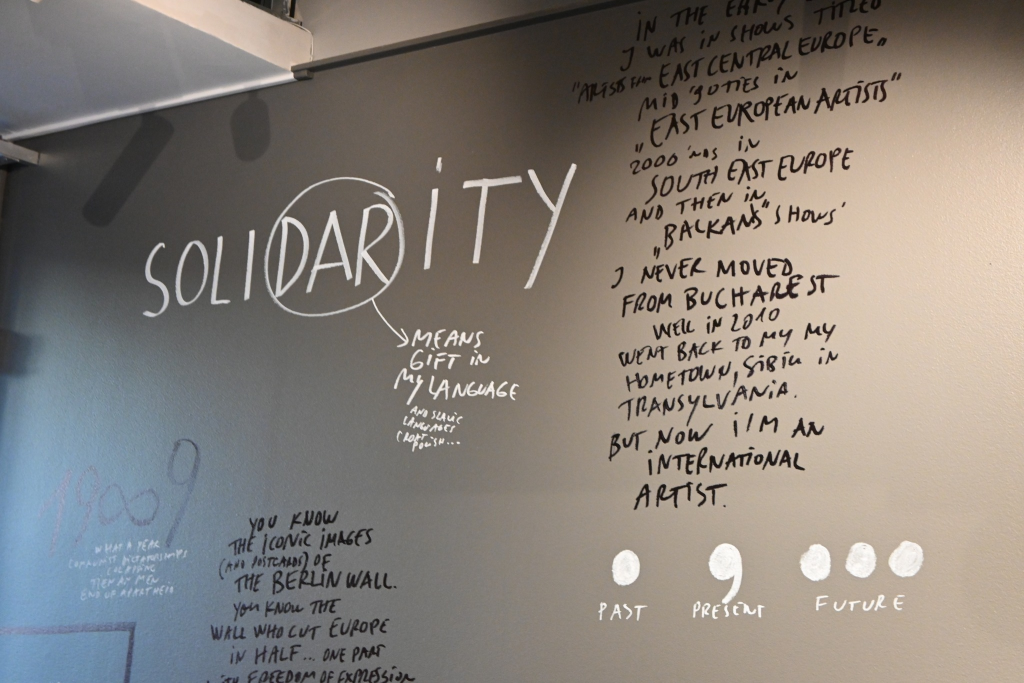 IN THE EARLY
I WAS IN SHOWS TITLED
"ARTISTS from EAST CENTRAL EUROPE„
MID '90TIES in
„EAST EUROPEAN ARTISTS"
2000 in
SOUTH EAST EUROPE
AND THEN in
„BALKANS" SHOWS'
I NEVER MOVED
FROM BUCHAREST
WELL in 2010
WENT BACK TO MY MY
HOMETOWN, SIBIU in
TRANSYLVANIA.
BUT NOW i/M AN
INTERNATIONAL
ARTIST.
SOLIDARITY
MEANS
GIFT in
MY LANGUAGE
AND SLAVIC
LANGUAGES
CROAT
POLISH...
WHAT A YEAR
COMMUNIST DICTATORSHIPS
TIEN AT MEN
END OF APARTHEID
YOU KNOW
THE ICONIC IMAGES
(AND POSTCARDS) OF
THE BERLIN WALL.
YOU KNOW THE
WALL WHO CUT EUROPE
IN HALF... ONE PART
WITH FREEDOM OF EXPRESSION
PAST PRESENT FUTURE